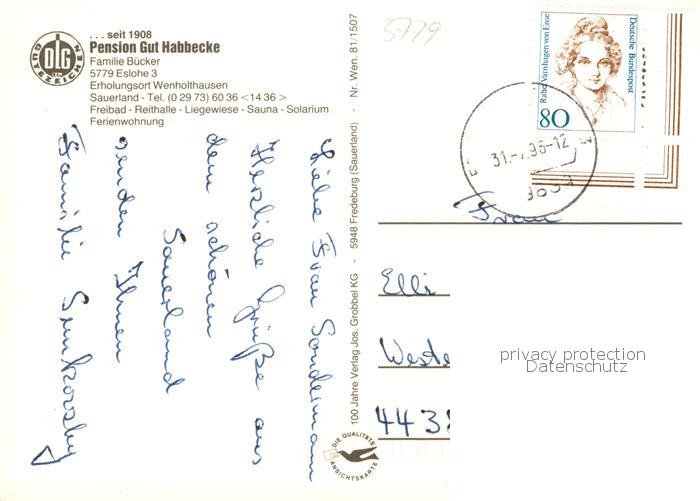 . . . seit 1908
Pension Gut Habbecke
Familie Bücker
5779 Eslohe 3
Erholungsort Wenholthausen
Sauerland - Tel. (0 29 73) 60 36 <14 36 >
Freibad - Reithalle - Liegewiese - Sauna - Solarium
Ferienwohnung
DLG
GÜTEZEICHEN
5779
Liebe Frau Sondermann
Herzliche Grüße aus
dem schönen
Sauerland
senden Ihnen
Familie
100 Jahre Verlag Jos. Grobbel KG - 5948 Fredeburg (Sauerland) - Nr. Wen. 81/1507
DIE QUALITÄTS
ANSICHTSKARTE
Rahel Varnhagen von Ense
Deutsche Bundespost
80
-12
Frau
Elli
Weste
443
privacy protection
Datenschutz